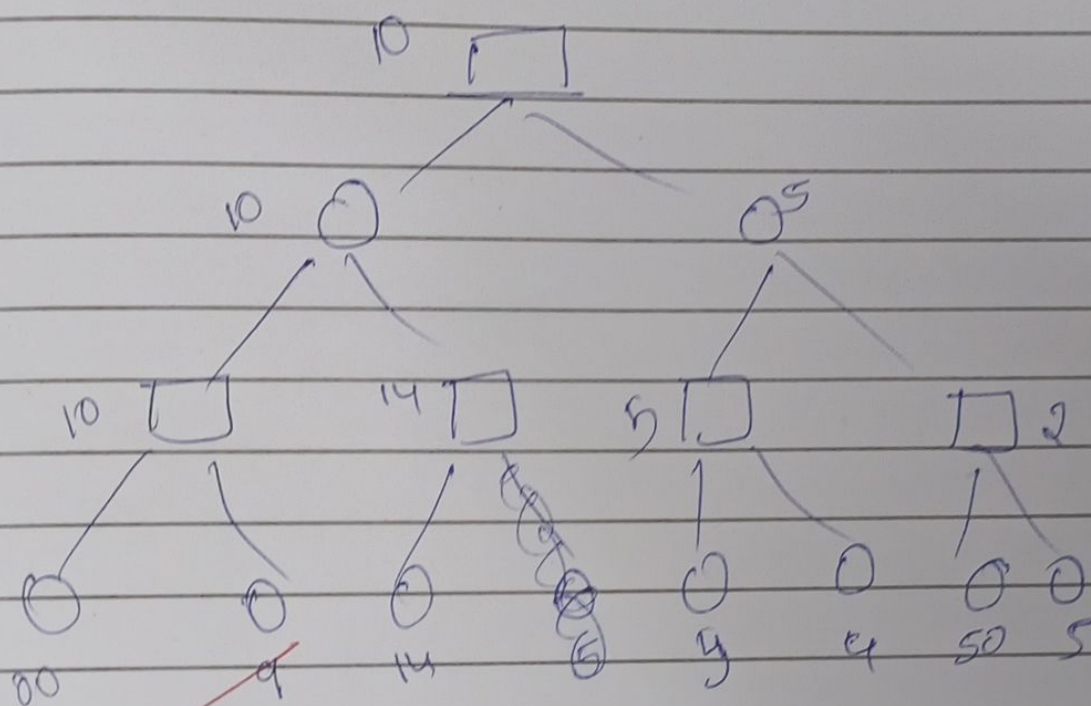 10
10 5
10 14 5 2
00 9 14 5 y 4 50 5